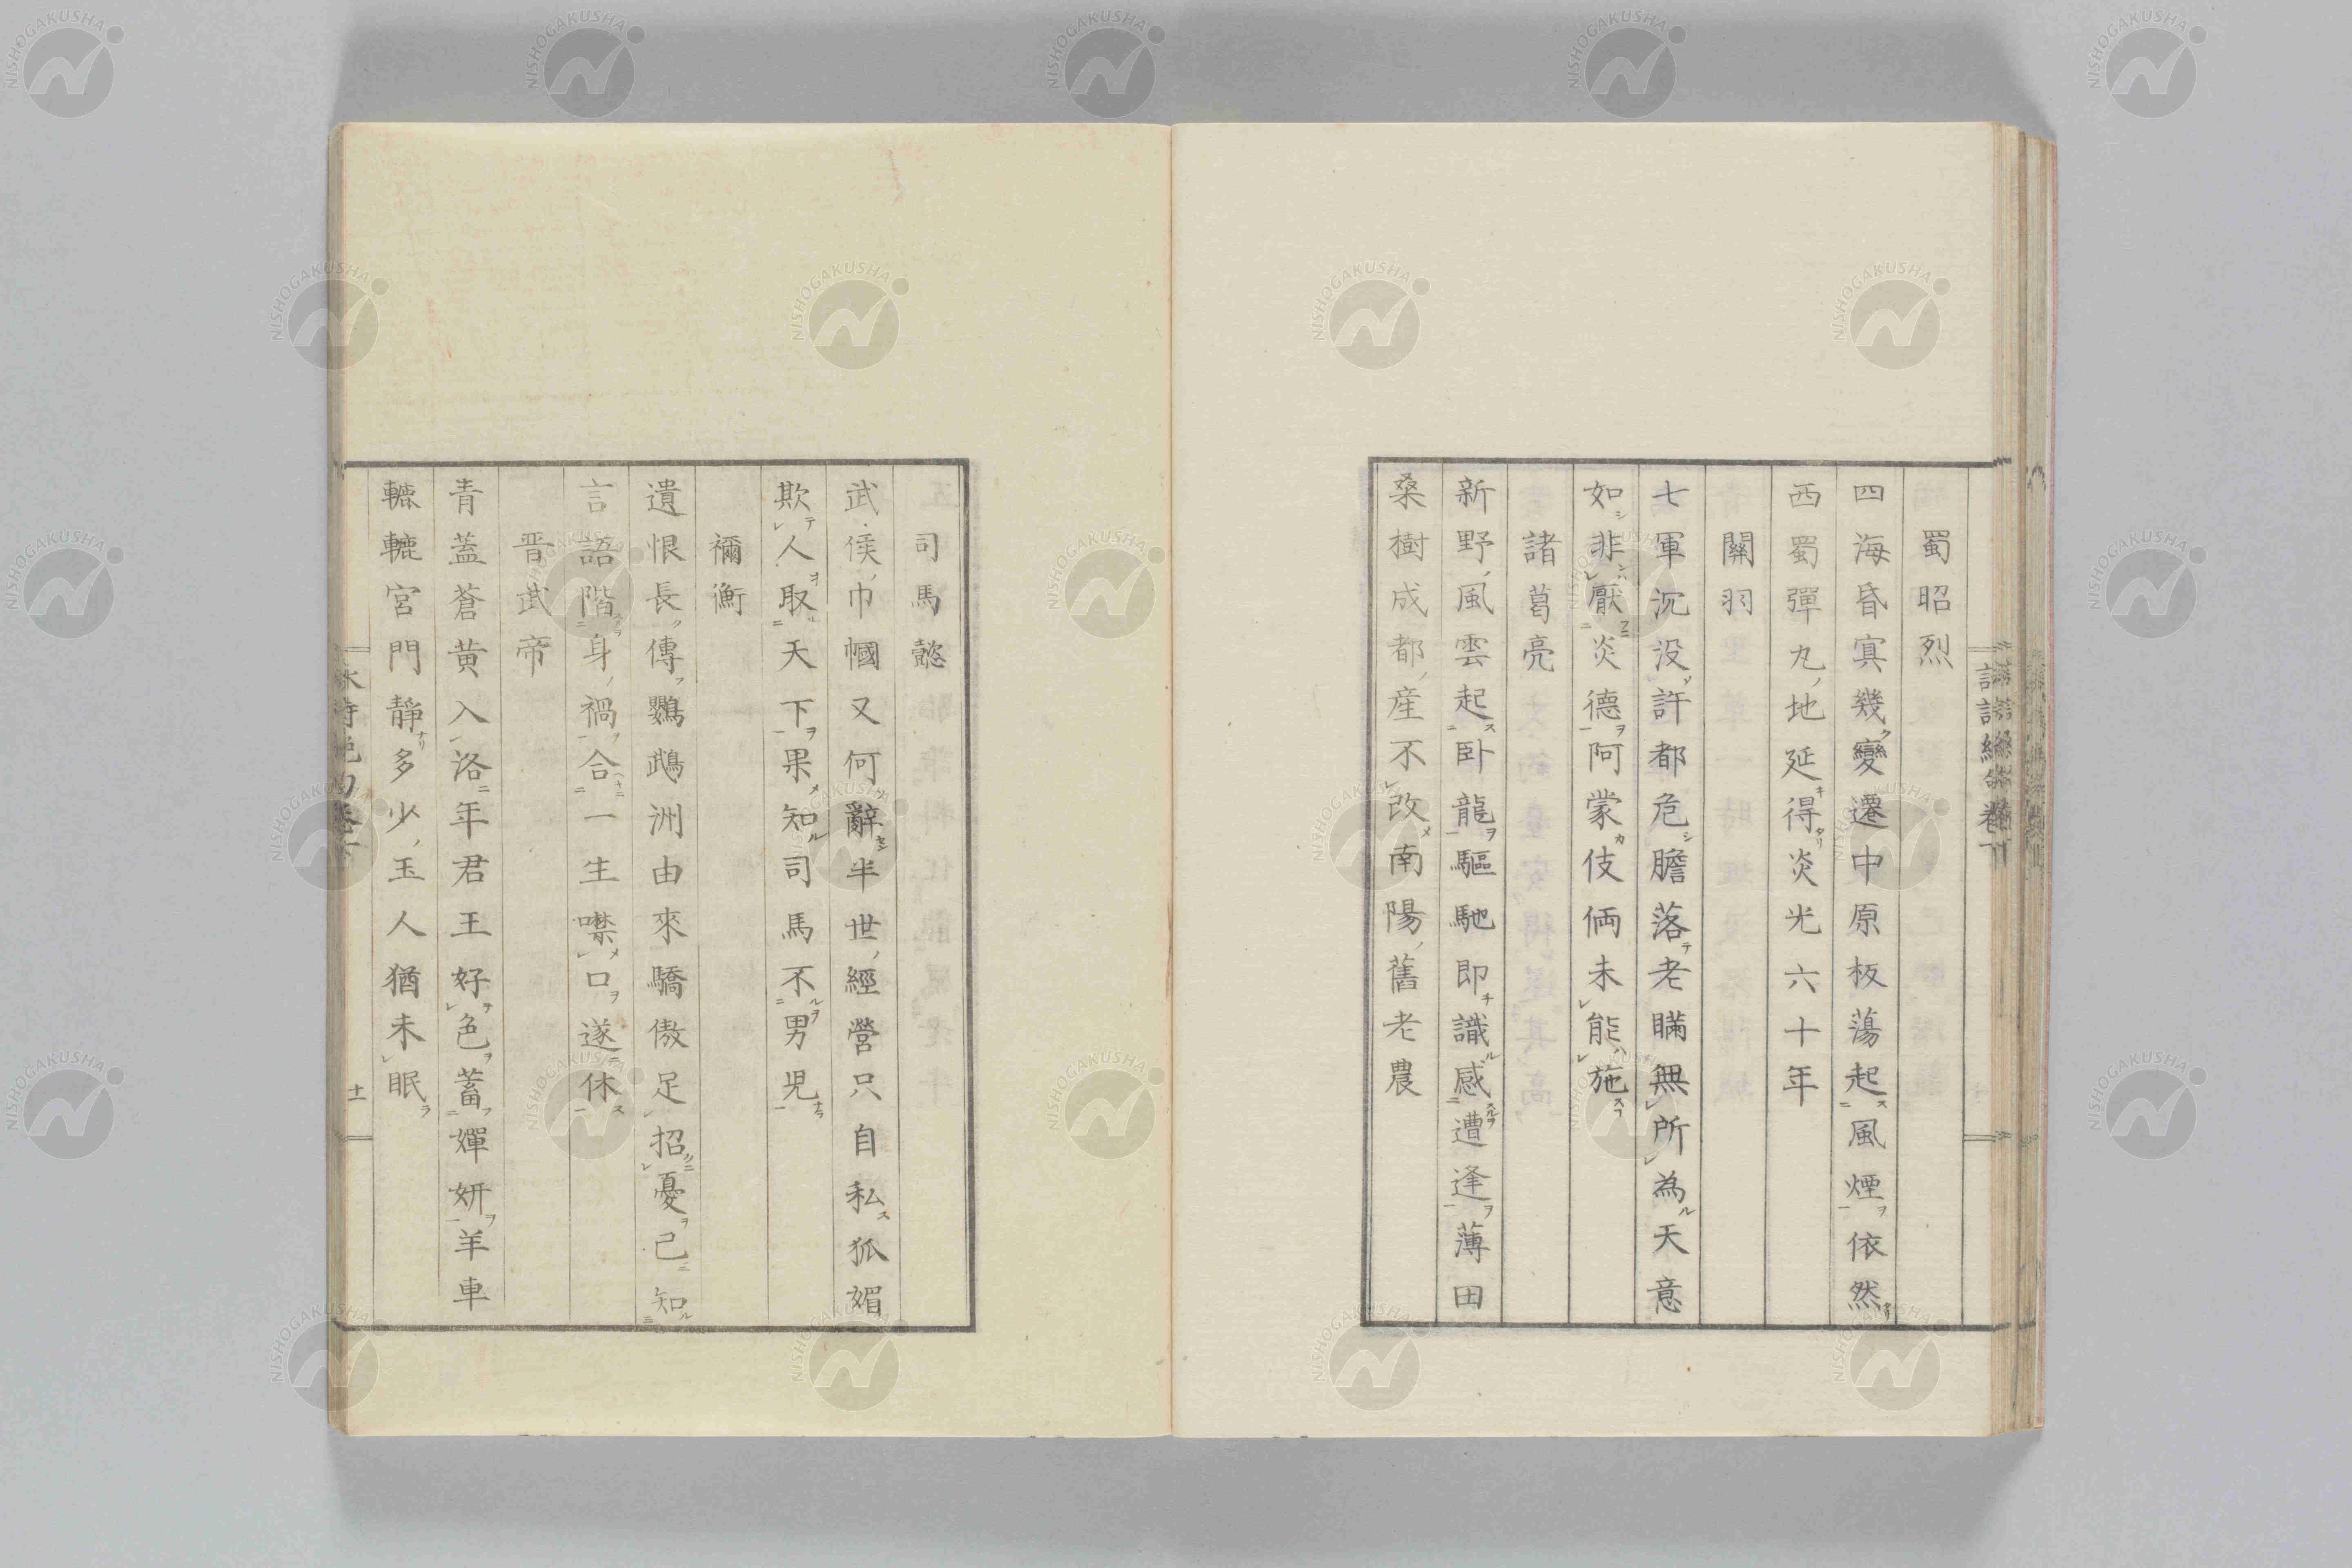 蜀昭烈
四海昏寘幾變遷中原板蕩起風煙依然
西蜀彈丸地延得炎光六十年
關羽
七軍沉没許都危膽落老瞞無所為天意
如非厭炎德阿蒙伎倆未能施
諸葛亮
新野風雲起卧龍驅馳即識感遭逢薄田
桑樹成都產不改南陽舊老農
司馬懿
武侯巾幗又何辭半世經營只自私狐媚
欺人取天下果知司馬不男児
禰衡
遺恨長傳鸚鵡洲由來驕傲足招憂己知
言語階身禍合一生噤口遂休
晋武帝
青蓋蒼黄入洛年君王好色蓄嬋妍羊車
轆轆宮門靜多少玉人猶未眠
十一
NISHOGAKUSHA